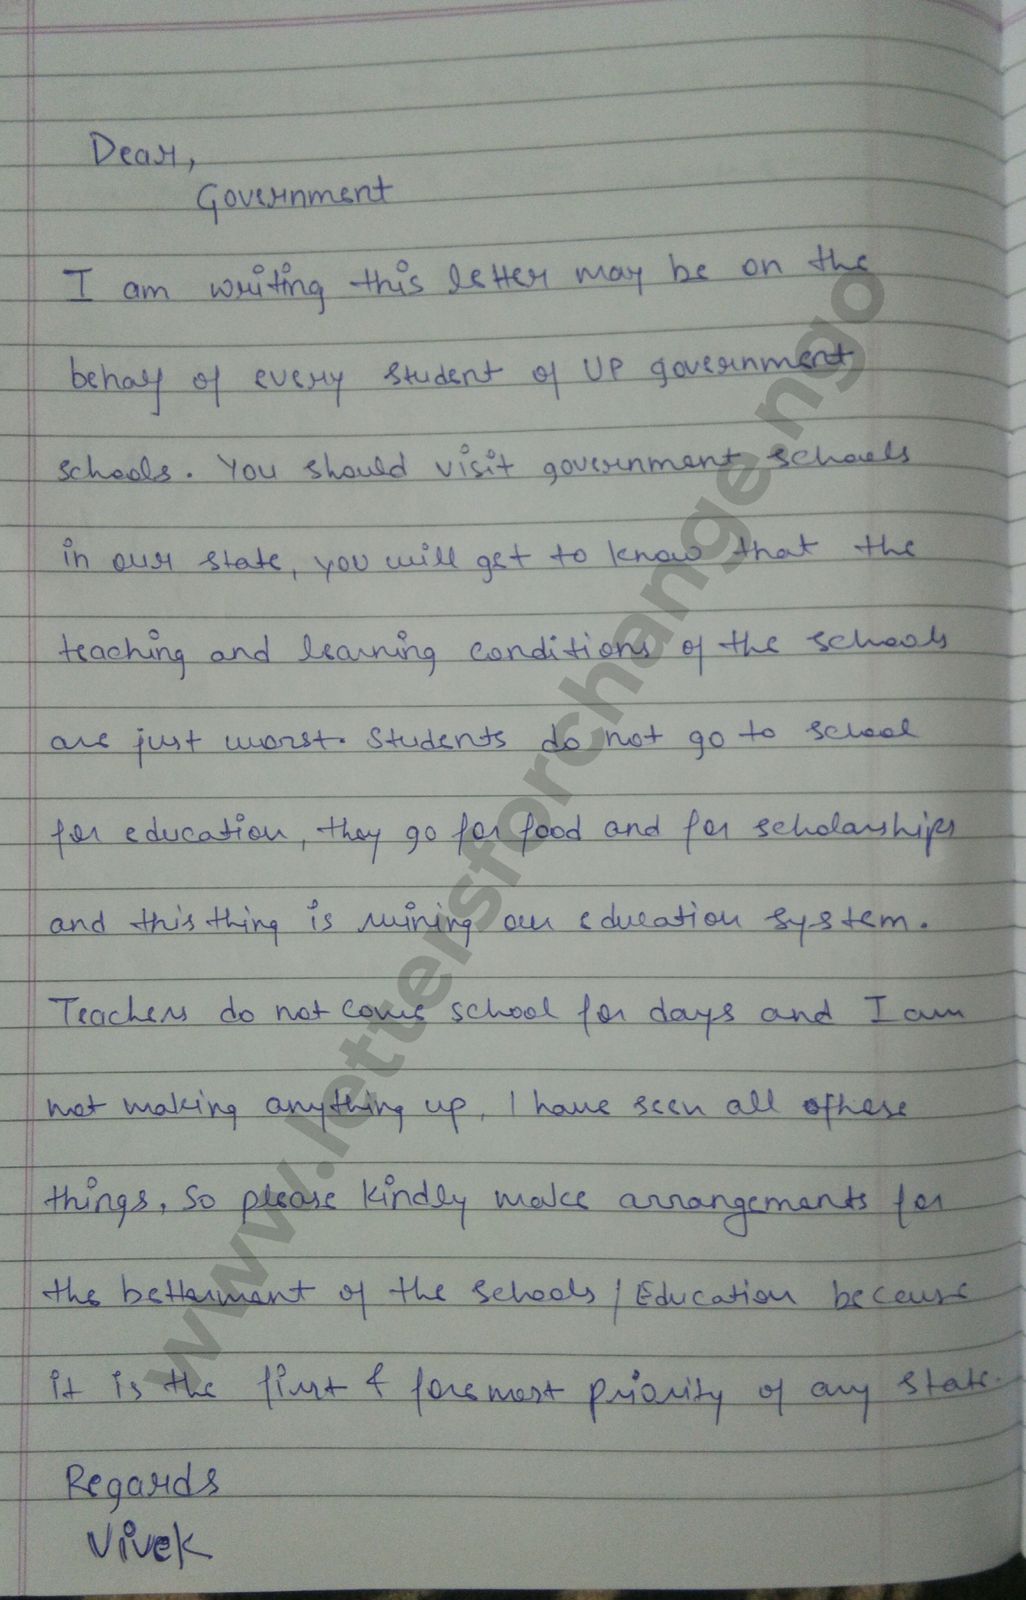 Dear,
Government
I am writing this letter may be on the
behalf of every student of UP government
schools. You should visit government schools
in our state, you will get to know that the
teaching and learning conditions of the schools
are just worst. Students do not go to school
for education, they go for food and for scholarships
and this thing is ruining our education system.
Teachers do not come school for days and I am
not making anything up, I have seen all of these
things, So please kindly make arrangements for
the betterment of the schools/Education because
it is the first & foremost priority of any state.
Regards
Vivek
www.lettersforchange.ngo